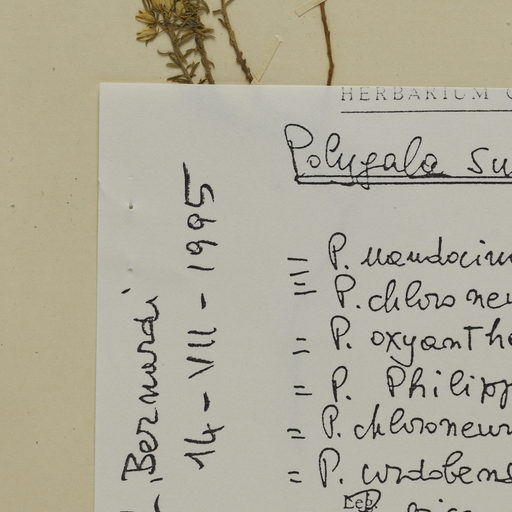 HERBARIUM
Polygala
≡ P.
= P. chlorone
= P. oxyanthe
= P. Philipp
= P. chloroneur
= P. cordobens
Bernardi
14-VII-1995